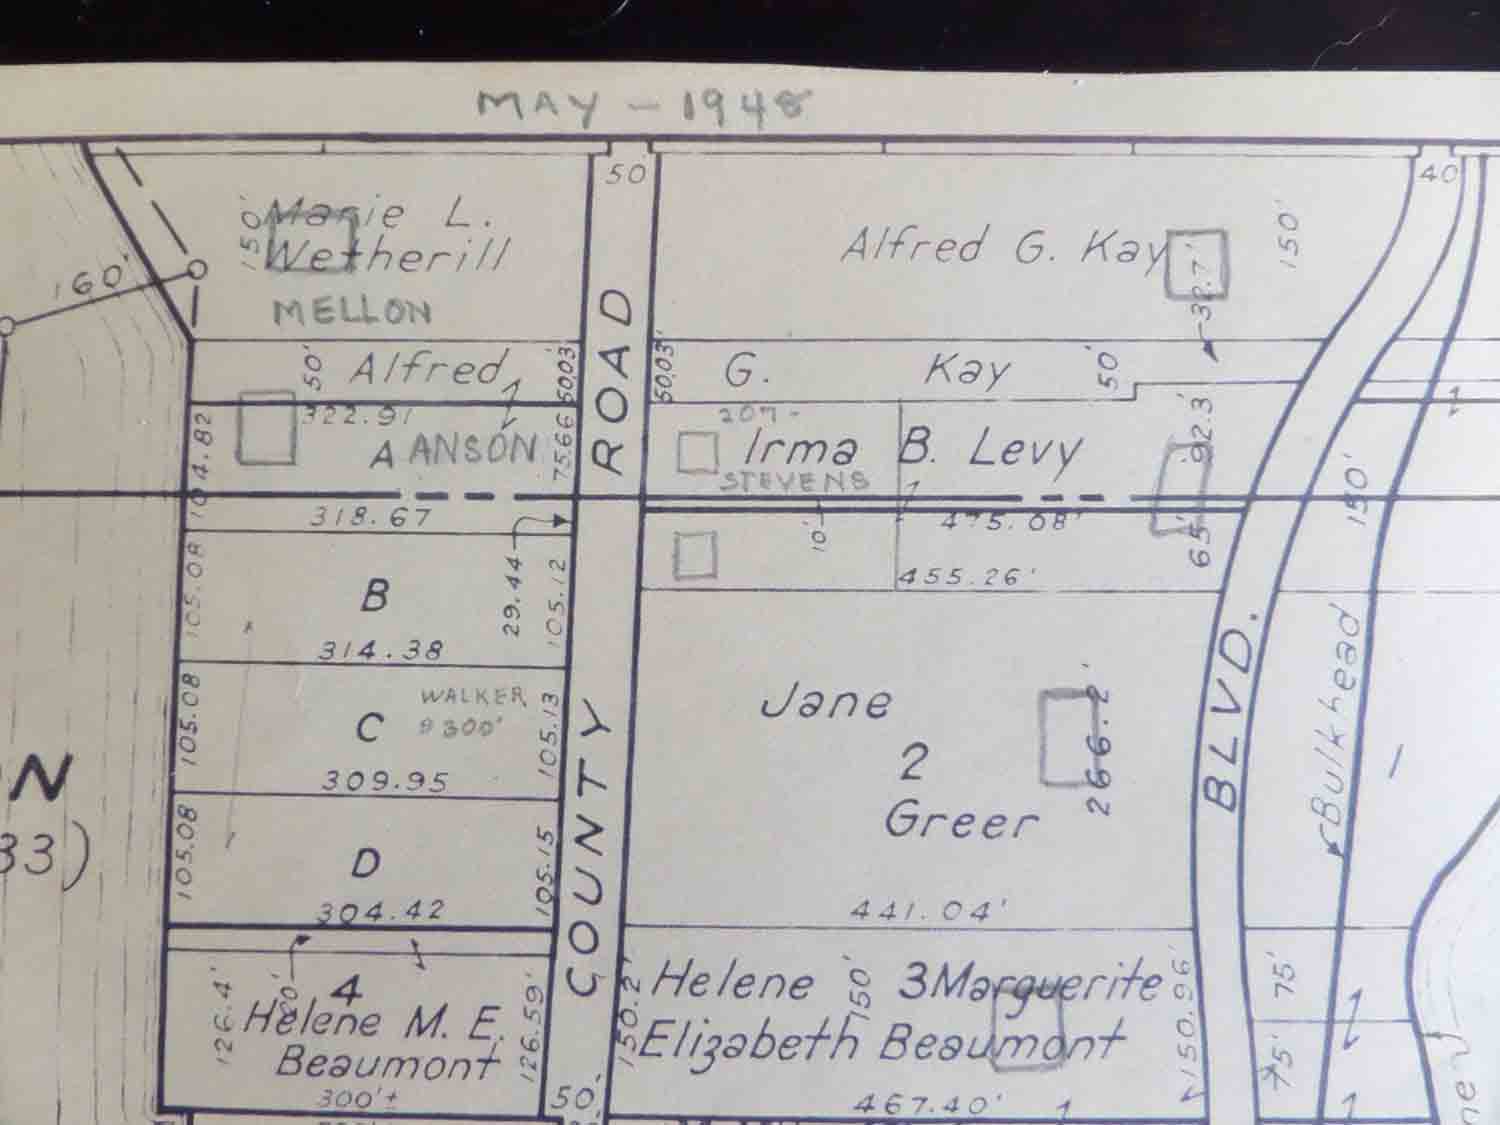 MAY - 1948
50
40
Marie L.
150'
Wetherill
Alfred G. Kay
150'
160'
MELLON
32.7'
Alfred
50'
50.03'
50.03'
G. Kay
50'
322.91
207-
92.3'
104.82
A ANSON
75.66
Irma B. Levy
STEVENS
150'
318.67
10'
475.08'
65'
455.26'
105.08
B
29.44
105.12
314.38
ROAD
COUNTY
BLVD.
Bulkhead
WALKER
300'
105.08
C
105.13
309.95
Jane
2
Greer
266.2'
N
33)
105.08
D
105.15
304.42
441.04'
4
Helene M. E.
Beaumont
126.4'
20'
126.59'
300'±
150.2'
Helene 3 Marguerite
150'
Elizabeth Beaumont
150.96'
75'
75'
50.
467.40'